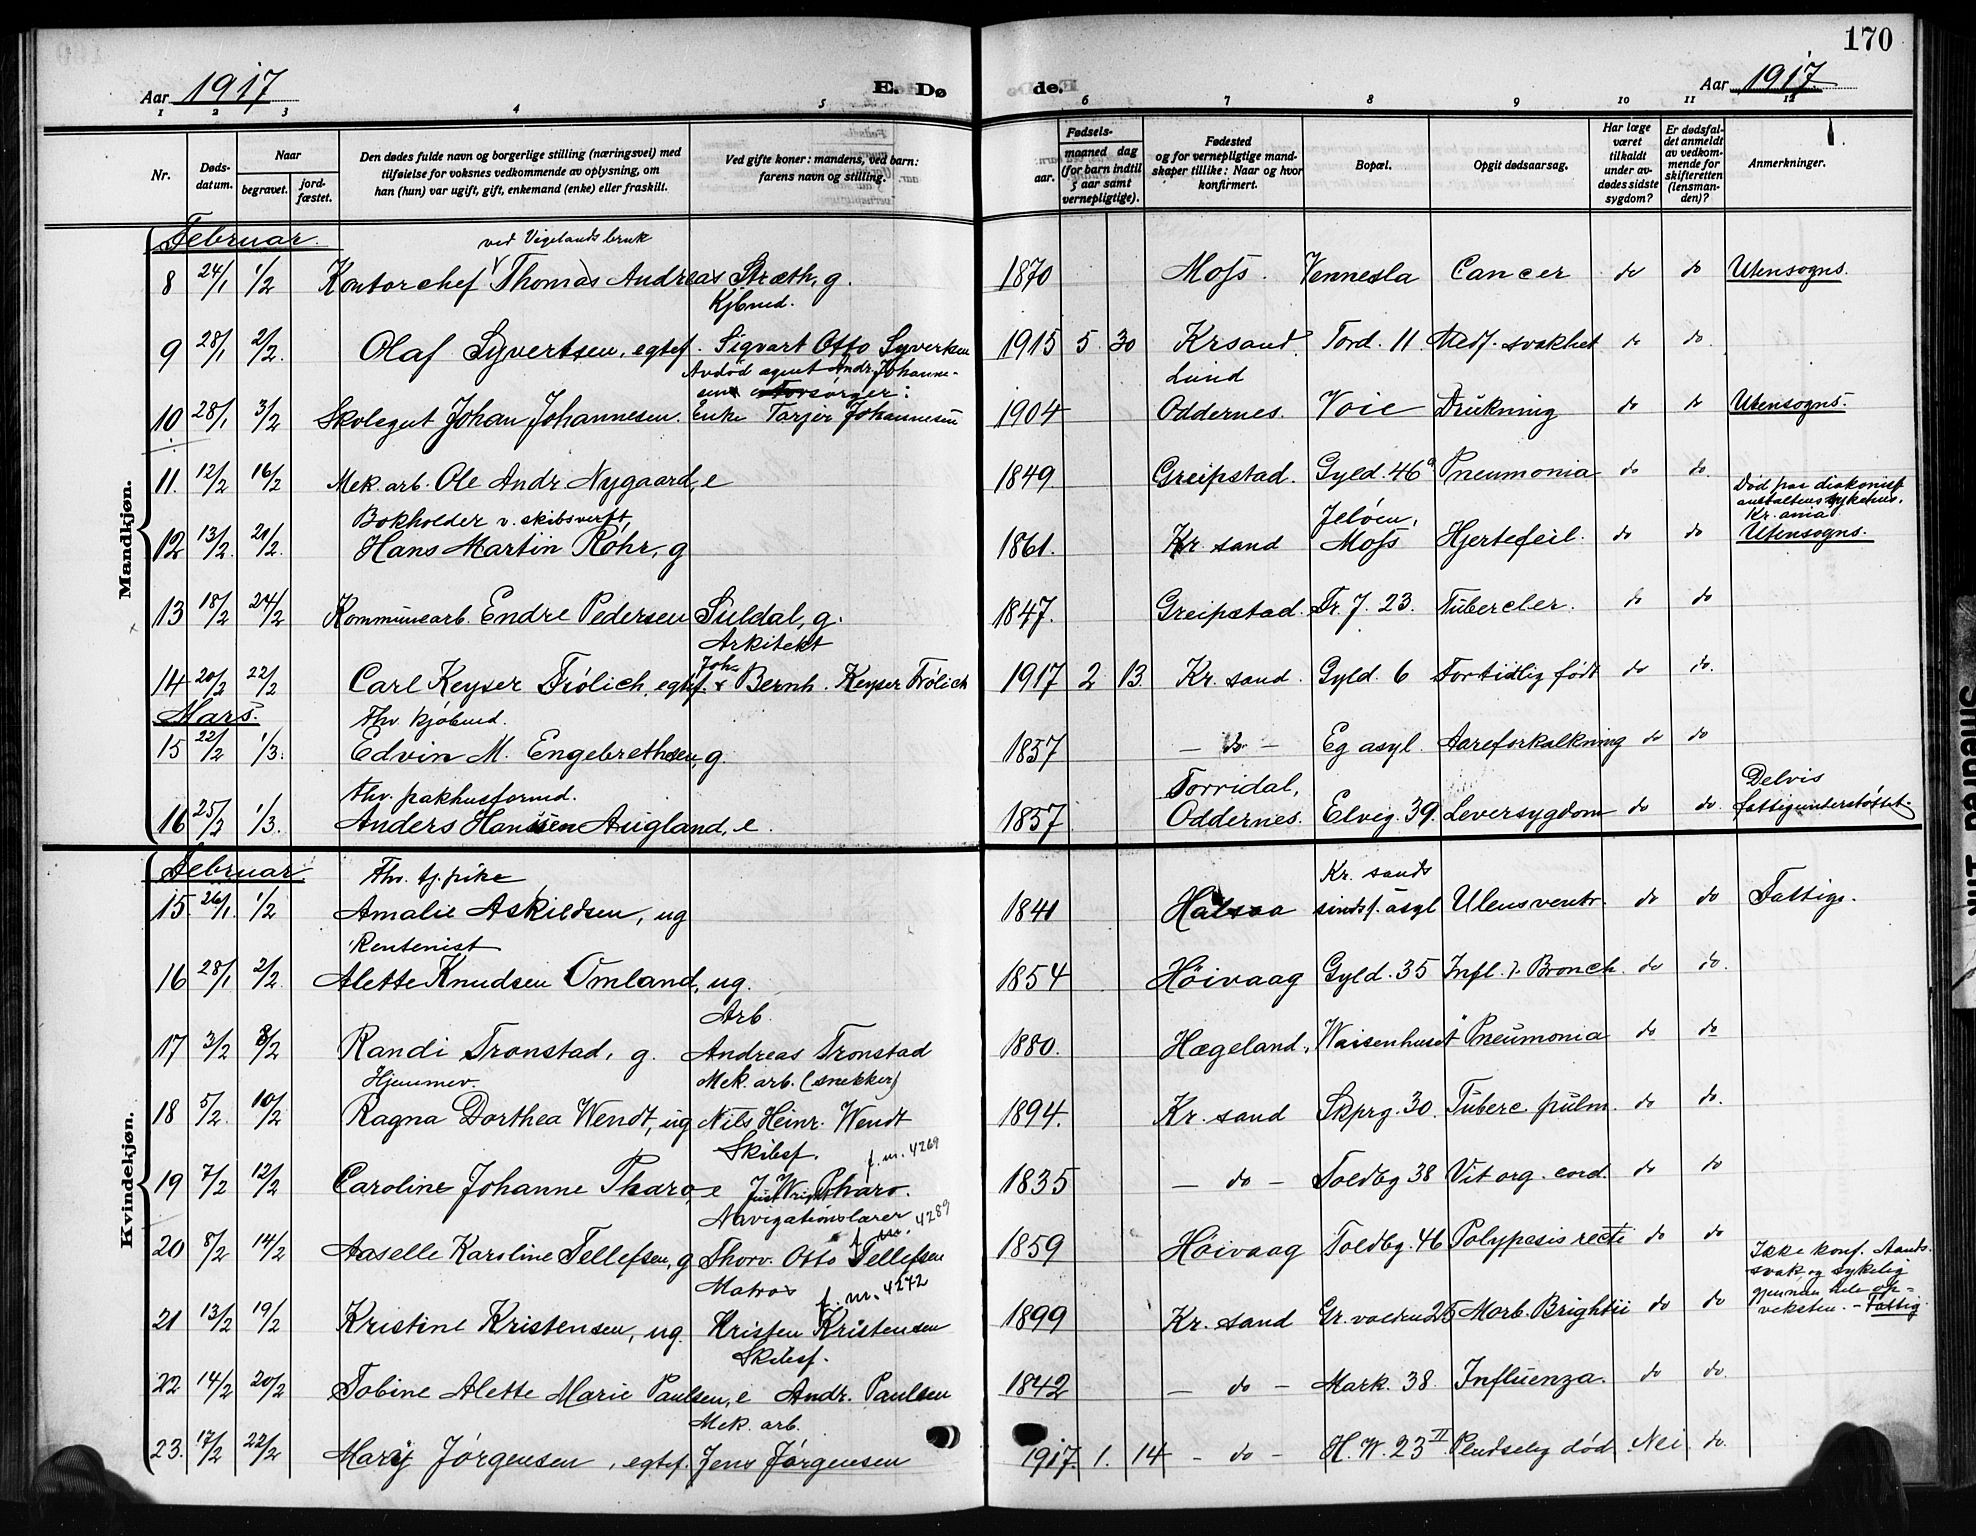 170
Aar 1917 E. Dø de. Aar 1917.
1 2 3 4 5 6 7 8 9 10 11 12
Nr. Døds-datum. Naar begravet. jord-fæstet. Den dødes fulde navn og borgerlige stilling (næringsvei) med tilføielse for voksnes vedkommende av oplysning, om han (hun) var ugift, gift, enkemand (enke) eller fraskilt. Ved gifte koner: mandens, ved barn: farens navn og stilling. Fødsels- aar. maaned dag (for barn indtil 5 aar samt vernepligtige). Fødested og for vernepligtige mand-skaper tillike: Naar og hvor konfirmert. Bopæl. Opgit dødsaarsag. Har læge været tilkaldt under av-dødes sidste sygdom? Er dødsfal-det anmeldt av vedkom-mende for skifteretten (lensman-den)? Anmerkninger.
Mandkjøn.
Februar. ved Vigelands bruk
8 24/1 1/2 Kontorchef Thomas Andreas Stræth, g. 1870 Moss. Vennesla Cancer do do Utensogns.
Kjbmd.
9 28/1 2/2. Olaf Syvertsen, egtef. Sigvart Otto Syvertsen 1915 5 30 Krsand. Tord. 11 Medf. svakhet do do.
Avdød agent Andr. Johanne- Lund
sens Forsørger:
10 28/1 3/2 Skolegut Johan Johannesen. Enke Tarjer Johannesen 1904 Oddernes. Voie Drukning do do Utensogns.
11. 12/2 16/2 Mek. arb. Ole Andr Nygaard, e 1849 Greipstad. Gyld. 46a Pneumonia do do.
Død paa diakonisse
anstaltens sykehus,
Kr.ania
Bokholder v. skibsverft, Jeløen,
12 13/2. 21/2. Hans Martin Rohr, g 1861. Kr sand Moss Hjertefeil. do do Utensogns.
13 18/2 24/2 Kommunearb. Endre Pedersen Suldal, g. 1847. Greipstad. Tr. J. 23. Tubercler. do do
Arkitekt
14 20/2 22/2 Carl Keyser Frölich, egtef. Joh. Bernh. Keyser Frölich 1917 2 13. Kr. sand. Gyld. 6 Fortidlig født do do.
Mars. Fhv kjøbmd.
15 22/2 1/3. Edvin M. Engebrethsen, g. 1837 – do – Eg asyl. Aareforkalkning do do
Fhv. pakhusformd. Torridal, Delvis
16 25/2 1/3. Anders Hanssen Augland, e. 1837 Oddernes. Elveg. 39. Leversygdom do do. fattigunderstøttet.
Kvindekjøn.
Februar Fhv. tj. pike Kr. sands
15. 26/1. 1/2 Amalie Askildsen, ug 1841 Halsaa sindsf. asyl Ulcus ventr. do do Fattigv.
Rentenist
16 28/1 2/2. Alette Knudsen Omland, ug. 1854 Höivaag Gyld. 35 Infl. Bronch. do do.
Arb.
17 3/2 8/2 Randi Tronstad, g. Andreas Tronstad 1880. Hægeland, Waisenhuset Pneumonia do do
Hjemmev. Mek. arb. (snekker)
18 5/2. 10/2 Ragna Dorthea Wendt, ug Nils Heinr. Wendt 1894. Kr. sand Skprg. 30. Tuberc. pulm. do do.
Skibsf. f. nr. 4269
19 7/2 12/2 Caroline Johanne Pharo, e Just Wright Pharo. 1835 – do – Toldbg 38 Vit. org. cord. do do
Navigationslærer f. nr. 4289
20 8/2 14/2 Aaselle Karoline Tellefsen, g Thorv. Otto Tellefsen 1859 Höivaag Toldbg. 46 Polyposis recti do do
Matros f. nr. 4272
Ikke konf. Aands-
svak, og sykelig
gjennem hele op-
veksten. – Fattig.
21 13/2 19/2 Kristine Kristensen, ug. Kristen Kristensen 1899 Kr. sand Gr. volden 25 Morb. Brightii do do
Skibsf.
22 14/2 20/2 Tobine Alette Marie Paulsen, e Andr. Paulsen 1842 – do – Mark. 38. Influenza. do do.
Mek. arb.
23. 17/2 22/2 Mary Jörgensen, egtef. Jens Jörgensen 1917. 1. 14 – do – H. W. 23 II Pludselig död. Nei do.